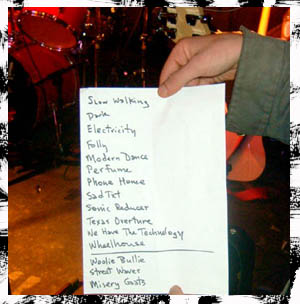 Slow Walking
Dark
Electricity
Folly
Modern Dance
Perfume
Phone Home
Sad Txt
Sonic Reducer
Texas Overture
We Have The Technology
Wheelhouse
Woolie Bullie
Street Waves
Misery Goats